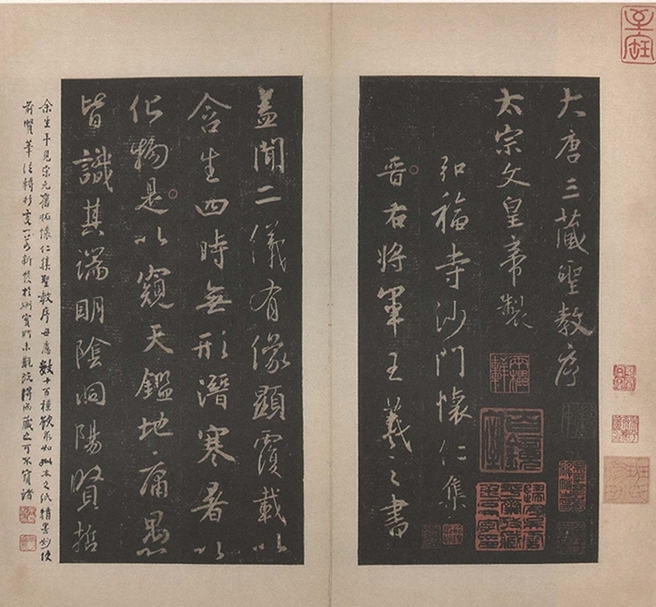 大唐三藏聖教序
太宗文皇帝製
弘福寺沙門懷仁集
晉右將軍王羲之書
蓋聞二儀有像顯覆載以
含生四時無形潛寒暑以
化物是以窺天鑑地庸愚
皆識其端明陰洞陽賢哲
余生平見宋元舊拓懷仁集聖教序毋慮數十百種求如此本之紙精墨妙使
前賢筆法轉折一一如新發於硎實所未觀藏之可不寶諸